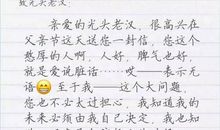 致光头老汉:
亲爱的光头老汉，很高兴在
父亲节这天送您一封信，您这个
憨厚的人啊，人好，脾气也好，
就是爱说脏话……哎——表示无
语 至于我——这个大问题，
您也不必太过担心，我知道我的
未来必须由我自己决定，我也知